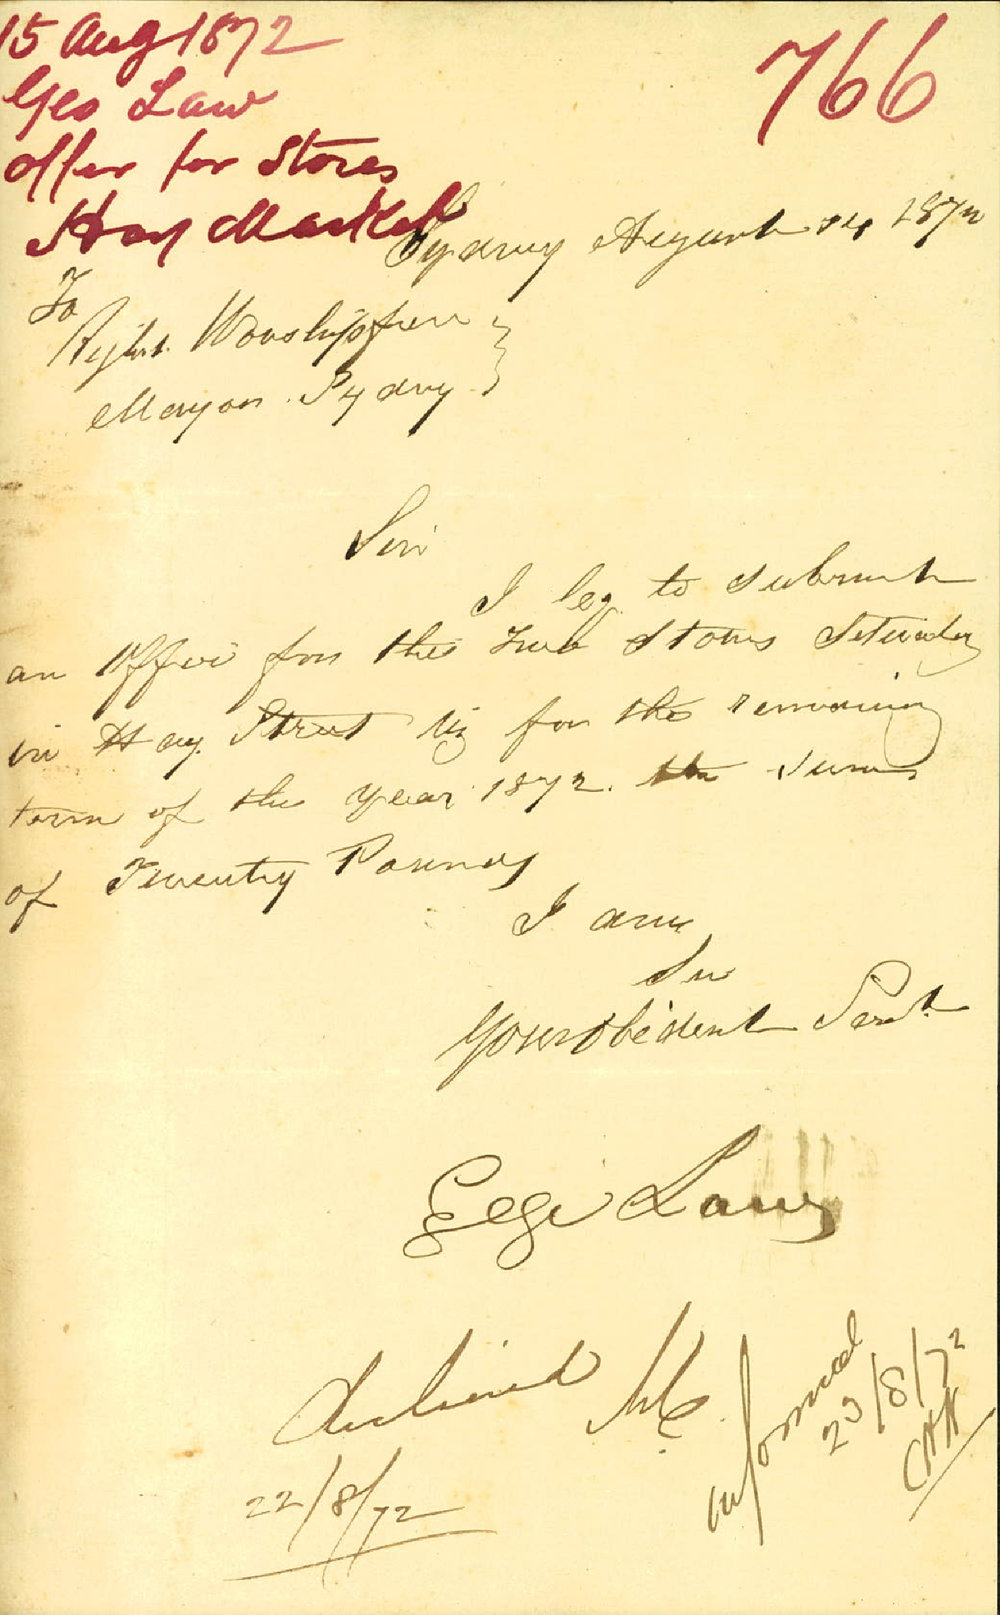 15 Aug 1872
Geo Law
offer for Stores
Hay Market
766
Sydney August 14 1872
To
Right Worshipfull
Mayor Sydny
Sir
I beg to submit
an Offer for the Stores
in Hay Street viz for the remaining
term of the year 1872. the sum
of Twenty Pounds
I am
Sir
Your Obident Servt
Geo Law
Declined
22/8/72
informed
23/8/72